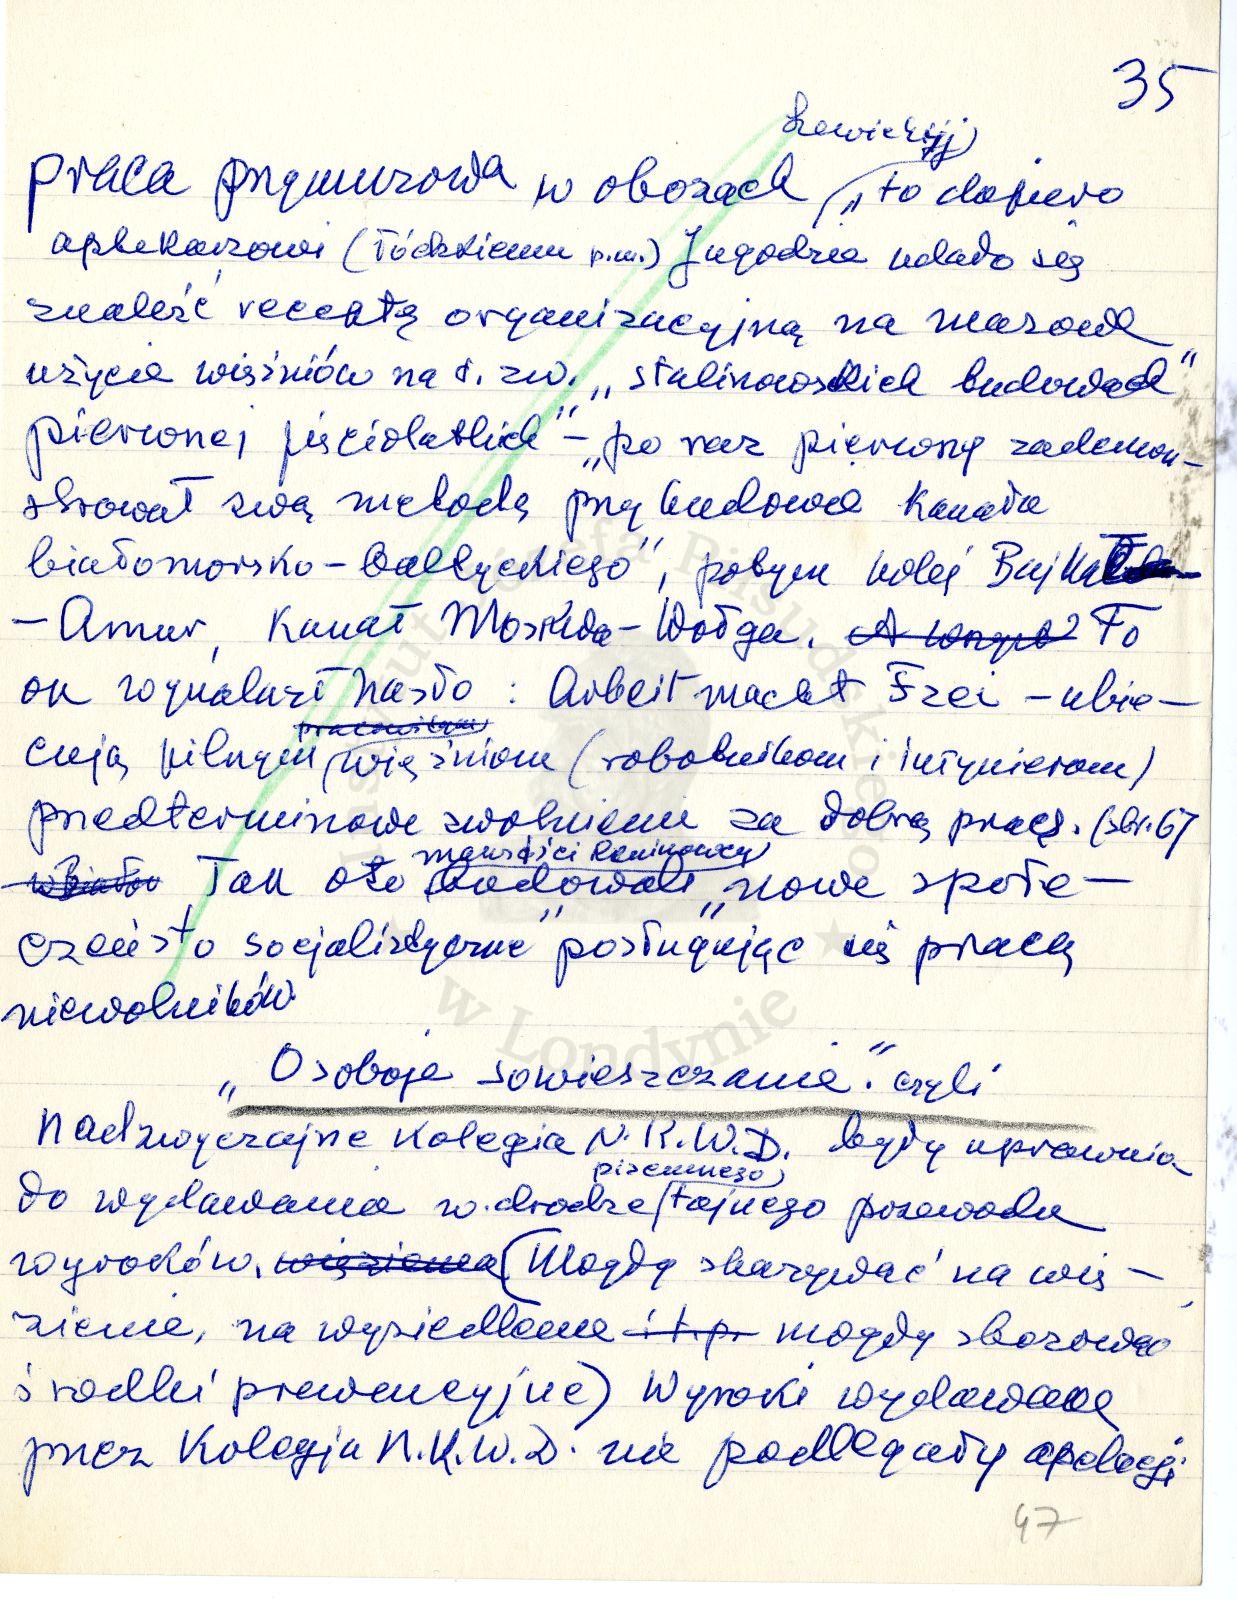 35
sowieckij
praca przymusowa w obozach „to dopiero
aptekarzowi (łódzkiemu p.m.) Jagodzie udało się
znaleźć receptę organizacyjną na masowe
użycie więźniów na t. zw. „stalinowskich budowach"
pierwszej pięciolatki" – „po raz pierwszy zademon-
strował swą metodę przy budowie Kanału
białomorsko-Bałtyckiego", potym kolej Bajkał
– Amur, Kanał Moskwa – Wołga. To
on wynalazł hasło : Arbeit macht Frei – obie-
cują pilnym pracowitym więźniom (robotnikom i inżynierom)
przedterminowe zwolnienie za dobrą pracę. (str. 67
Tak oto marksiści leninowcy budowali „nowe społe-
czeństwo socjalistyczne" posługując się pracą
niewolników.
„Osoboje sowieszczanie". czyli
Nadzwyczajne Kolegia N.K.W.D. były uprawnia
do wydawania w drodze pisemnego tajnego przewodu
wyroków. więzienia (Mogły skazywać na wię-
zienie, na wysiedlenie i t.p. mogły stosować
środki prewencyjne) Wyroki wydawane
przez Kolegja N.K.W.D. nie podlegały apelacji
47
w Londynie